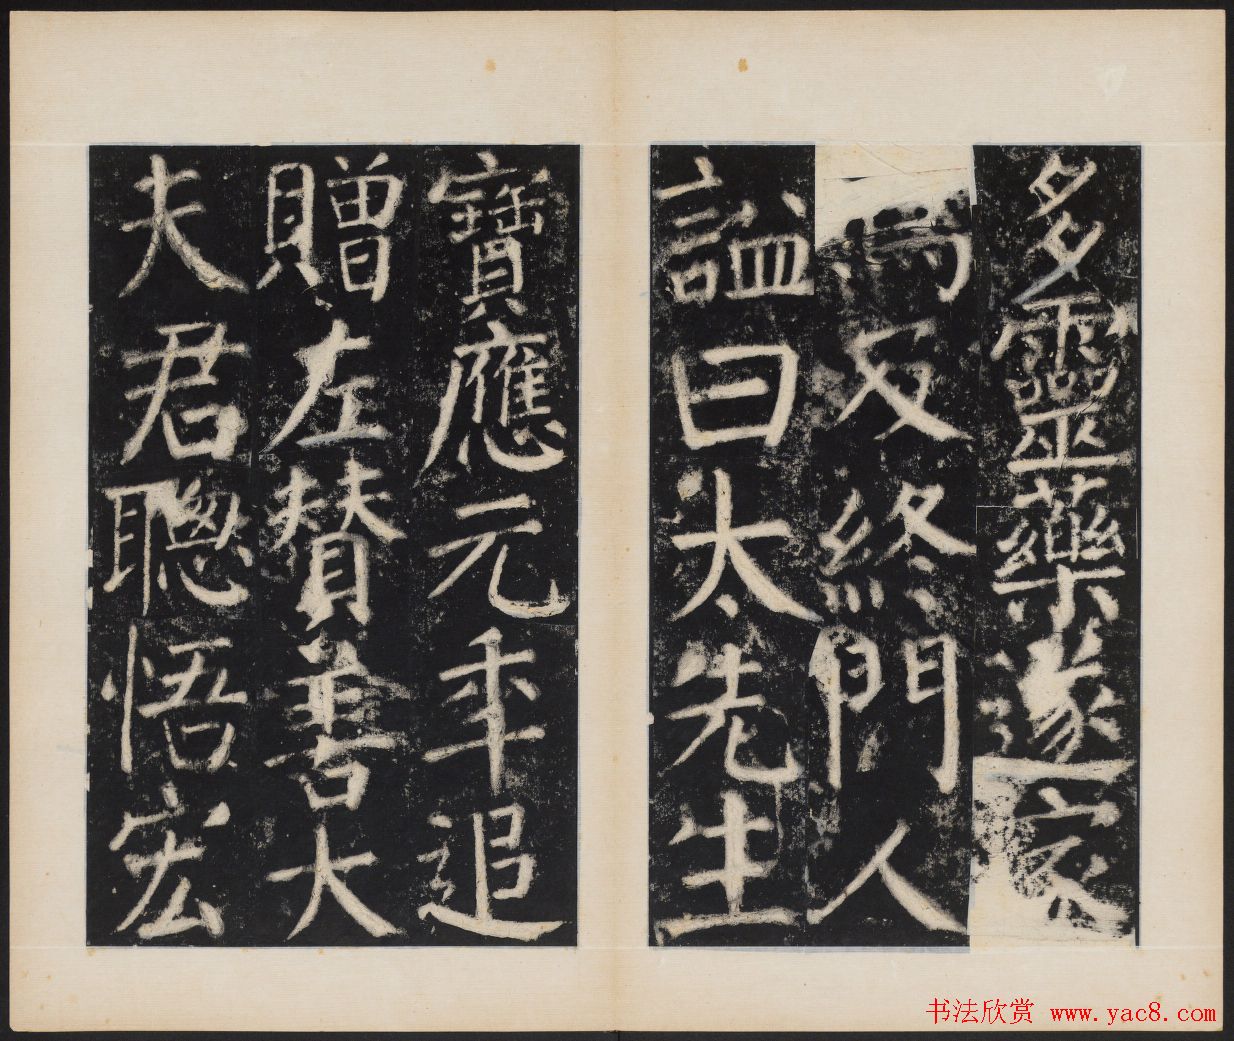 多靈藥遂家
焉及終門人
謚曰太先生
寶應元年追
贈左贊善大
夫君聰悟宏
书法欣赏 www.yac8.com